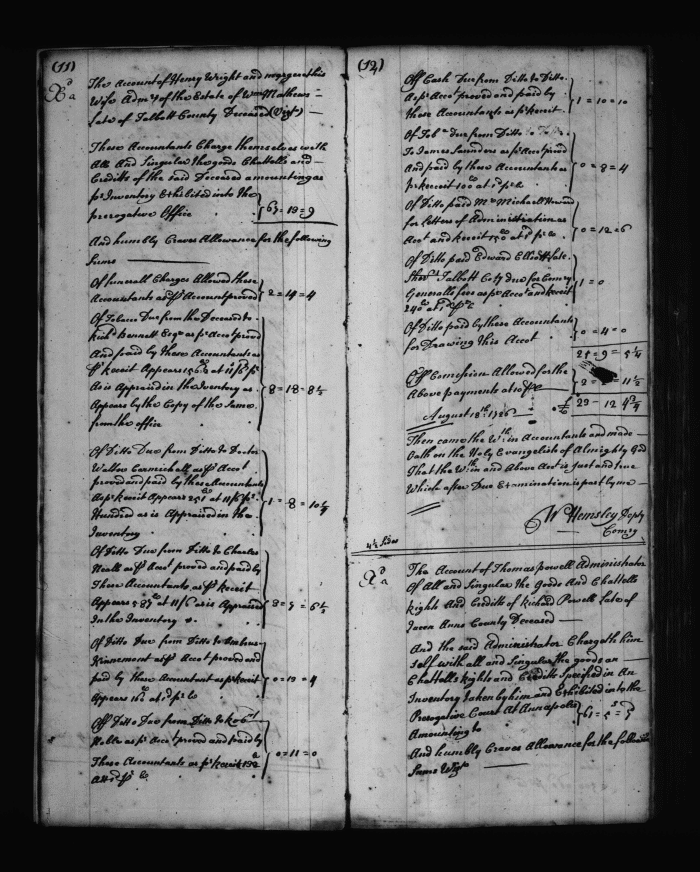 (11)
The Account of Henry Wright and
Wife Adm.x of the Estate of Wm Mathews
late of Talbott County Deceased (Vizt)
These Accountants Charge themselves with
All And Singular the goods Chattells and
Creditts of the said Deceased amounting as
pr Inventory Exhibited into the
prerogative Office 67=19=9
And humbly Craves Allowance for the following
Sums
Of funerall Charges Allowed these
Accountants as pr Account proved 2=14=4
Of Tobacco Due from the Deceased to
Richd Bennett Esqr as pr Acct proved
And paid by these Accountants as
pr receit Appears at 11/6 pr
As is Appraised in the Inventory as
Appears by the Copy of the Same
from the office 8=18=8½
Of Ditto Due from Ditto to Doctor
Carmichall as pr Acct
proved and paid by these Accountants
As pr receit Appears 251 at 11/6 pr
Hundred as is Appraised in the
Inventory 1=8=10¼
Of Ditto Due from Ditto to Charles
as pr Acct proved and paid by
These Accountants as pr receit
Appears 587 at 11/6 as is Appraised
In the Inventory
Of Ditto Due from Ditto to Ambrus
Kinnemont as pr Acct proved and
paid by these Accountant as pr receit
Appears 0=19=4
Off Ditto Due from Ditto to Robt
as pr Acct proved and paid by
These Accountants as pr receit 132
0=11=0
(12)
Off Cash Due from Ditto to Ditto
As pr Acct proved and paid by
these Accountants as pr receit 1=10=10
Of Tobo Due from Ditto
To James Saunders as pr Acct proved
And paid by these Accountants as
pr receit 100 at 0=8=4
Of Ditto paid Mr Michael Howard
for Letters of Administration as
Acct and receit 150 at 0=12=6
Of Ditto paid Edward Elliott late
Sherf Talbott Coty due for Comry
Generalls fees as pr Acct and receit
240 at 1=0
Of Ditto paid by these Accountants
for Drawing this Acct 0=4=0
25=9=5¼
Off Comission Allowed for the
Above payments at 10 pr 2= 11½
August 18th 1726 29-12 4¾
Then came the Wthin Accountants and made
Oath on the Holy Evangelists of Almighty God
That the Wthin and Above Acct is Just and true
Which after Due Examination is past by me
Wm Hemsley Depty
Comry
4½ Sides
The Account of Thomas Powell Administrator
Of All and Singular the Goods And Chattells
rights And Creditts of Richard Powell Late of
Queen Anns County Deceased
And the said Administrator Chargeth him
self with all and Singular the goods an
Chattells rights and Creditts Specified in An
Inventory taken by him and Exhibited into the
Prerogative Court At Annapolis
Amounting to
And humbly Craves Allowance for the following
Sums Vizt